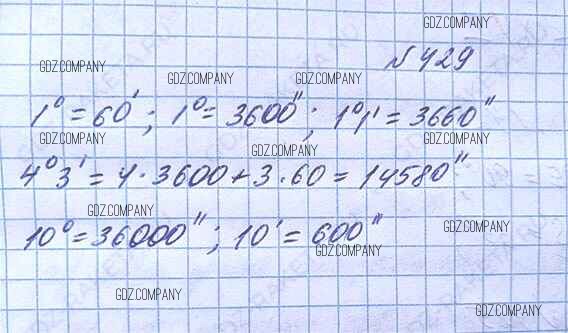 GDZ.COMPANY
№ 429
GDZ.COMPANY
GDZ.COMPANY GDZ.COMPANY
1° = 60'; 1° = 3600"; 1°1' = 3660"
GDZ.COMPANY GDZ.COMPANY
GDZ.COMPANY
4°3' = 4·3600+3·60 = 14580"
GDZ.COMPANY
10° = 36000"; 10' = 600"
GDZ.COMPANY
GDZ.COMPANY
GDZ.COMPANY
GDZ.COMPANY